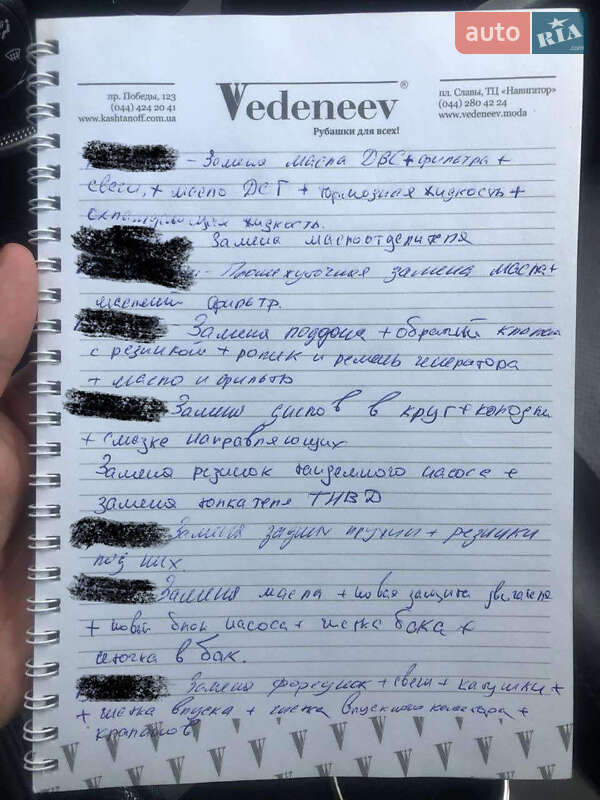 auto RIA.com
пр. Победы, 123
(044) 424 20 41
www.kashtanoff.com.ua
Vedeneev®
Рубашки для всех!
пл. Славы, ТЦ «Навигатор»
(044) 280 42 24
www.vedeneev.moda
- Замена масла ДВС + фильтра +
свечи, + масло DSG + тормозная жидкость +
охлаждающая жидкость.
Замена маслоотделителя
- Промежуточная замена масла +
масленый фильтр.
Замена поддона + обратный клапан
с резинкой + ролик и ремень генератора
+ масло и фильтр
Замена дисков в круг + колодки
+ смазке направляющих
Замена резинок тандемного насоса +
замена толкателя ТНВД
Замена задних пружин + резинки
под них.
Замена масла + новая защита двигателя
+ новый блок насоса + чистка бака +
сеточка в бак.
Замена форсунок + свечи + катушки +
+ чистка впуска + чистка впускного коллектора +
клапанов